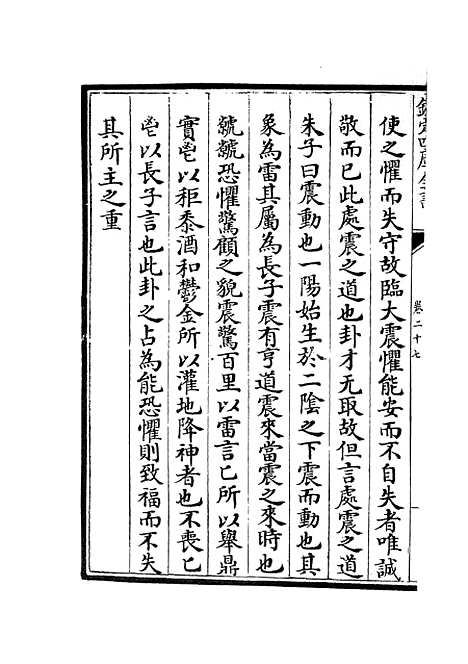 欽定四庫全書
卷二十七
使之懼而失守故臨大震懼能安而不自失者唯誠
敬而已此處震之道也卦才无取故但言處震之道
朱子曰震動也一陽始生於二陰之下震而動也其
象為雷其屬為長子震有亨道震來當震之來時也
虩虩恐懼驚顧之貌震驚百里以雷言匕所以舉鼎
實鬯以秬黍酒和鬱金所以灌地降神者也不喪匕
鬯以長子言也此卦之占為能恐懼則致福而不失
其所主之重